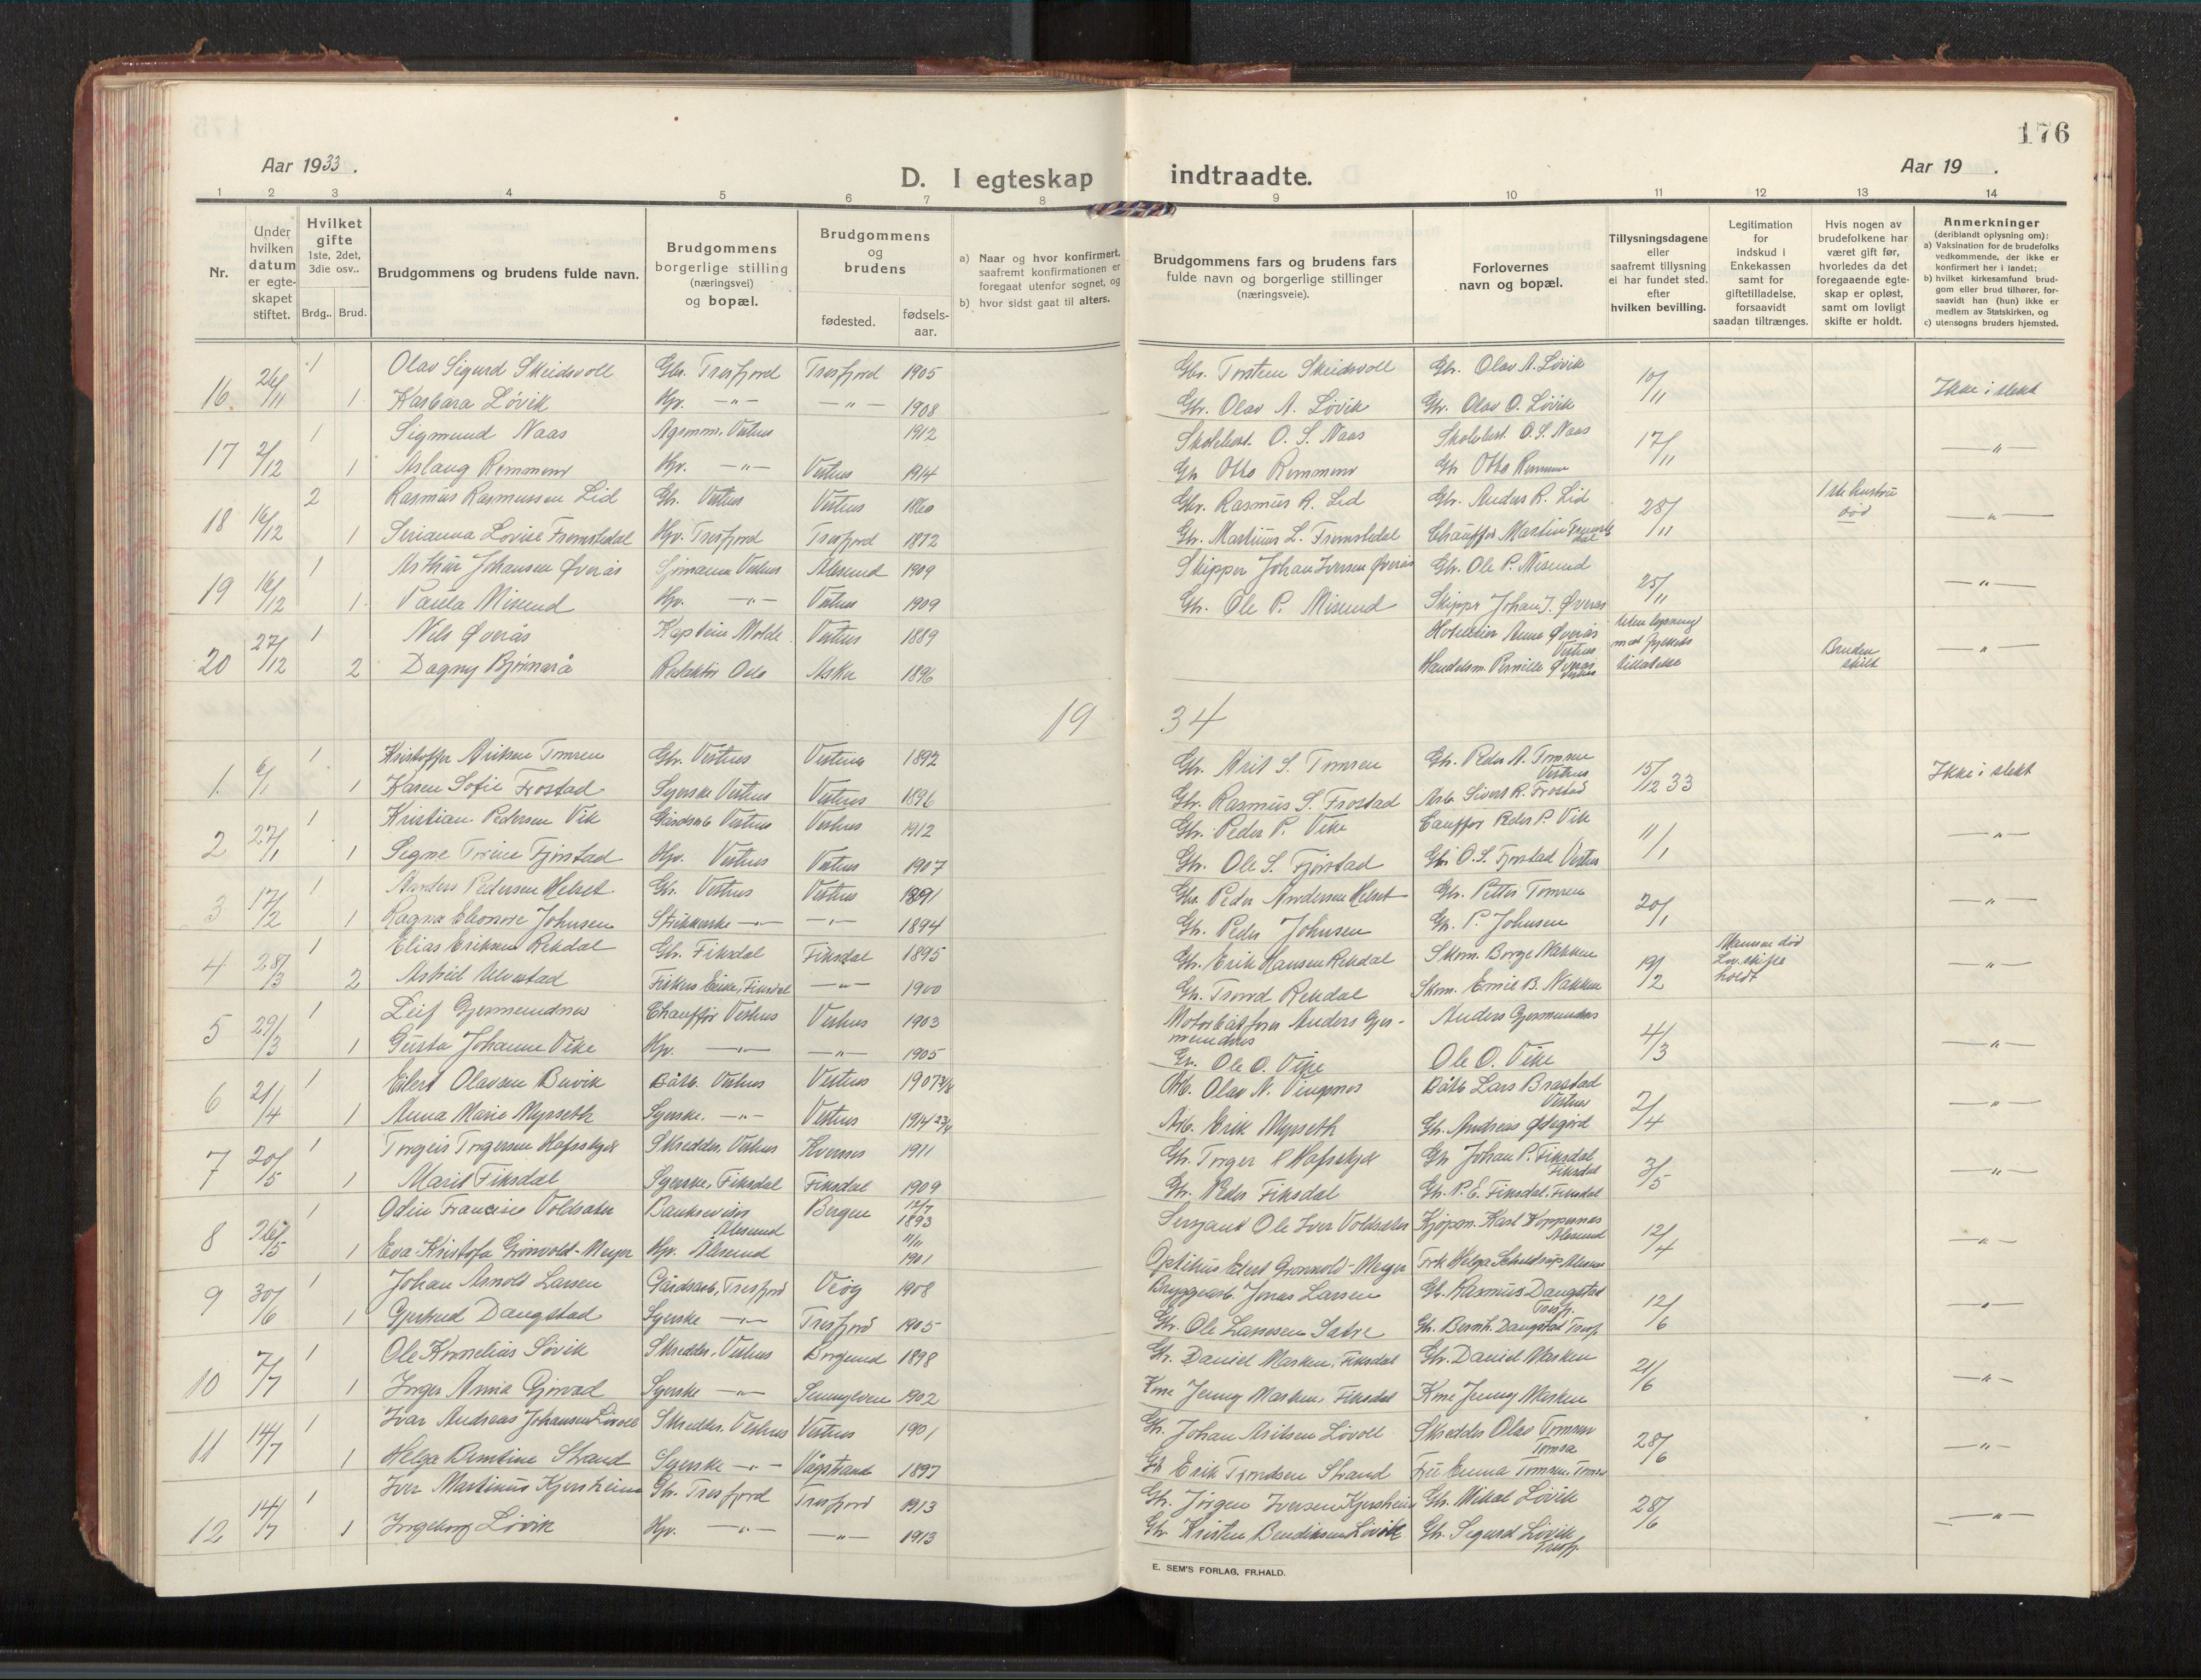 176
Aar 1933.
Aar 19 .
D. I egteskap indtraadte.
1 2 3 4 5 6 7 8 9 10 11 12 13 14
Nr.
Under hvilken datum er egte-skapet stiftet.
Hvilket gifte 1ste, 2det, 3die osv..
Brdg.. Brud.
Brudgommens og brudens fulde navn.
Brudgommens borgerlige stilling (næringsvei) og bopæl.
Brudgommens og brudens
fødested.
fødsels-aar.
a) Naar og hvor konfirmert, saafremt konfirmationen er foregaat utenfor sognet, og
b) hvor sidst gaat til alters.
Brudgommens fars og brudens fars fulde navn og borgerlige stillinger (næringsveie).
Forlovernes navn og bopæl.
Tillysningsdagene eller saafremt tillysning ei har fundet sted. efter hvilken bevilling.
Legitimation for indskud i Enkekassen samt for giftetilladelse, forsaavidt saadan tiltrænges.
Hvis nogen av brudefolkene har været gift før, hvorledes da det foregaaende egte-skap er opløst, samt om lovligt skifte er holdt.
Anmerkninger (deriblandt oplysning om):
a) Vaksination for de brudefolks vedkommende, der ikke er konfirmert her i landet;
b) hvilket kirkesamfund brud-gom eller brud tilhører, for-saavidt han (hun) ikke er medlem av Statskirken, og
c) utensogns bruders hjemsted.
16 26/11 1 Olav Sigurd Skeidsvoll Gbr. Tresfjord Tresfjord 1905 Gbr. Torstein Skeidsvoll Gbr. Olav A. Løvik 10/11 Ikke i slekt
1 Karbara Løvik Hv. —"— —"— 1908 Gbr. Olav A. Løvik Gbr. Olav O. Løvik
17 2/12 1 Sigmund Naas Agronom. Vestnes 1912 Skolebest. O. S. Naas Skolebest. O. S. Naas 17/11 —"—
1 Aslaug Remmem Hv. —"— Vestnes 1914 Gbr Otto Remmem Gbr Otto Remmem
18 16/12 2 Rasmus Rasmussen Lid Gbr. Vestnes Vestnes 1860 Gbr. Rasmus R. Lid Gbr. Anders R. Lid 28/11 1ste hustru død —"—
1 Serianna Lovise Fremstedal Hv. Tresfjord Tresfjord 1872 Gbr. Martinus L. Fremstedal Chauffør Martin Fremstedal
19 16/12 1 Arthur Johansen Øverås Sjømann Vestnes Ålesund 1909 Skipper Johan Iversen Øverås Gbr. Ole P. Misund 25/11 —"—
1 Paula Misund Hv. —"— Vestnes 1909 Gbr. Ole P. Misund Skipper Johan J. Øverås
20 27/12 1 Nils Øverås Kaptein Molde Vestnes 1889 Hotelleier Anne Øverås Vestnes Uten lysning med fylkets tillatelse Bruden skilt —"—
2 Dagny Bjørnarå Redaktør Oslo Asker 1896 Handelsm. Pernille Øverås Vestnes
19 34
1. 6/1 1 Kristoffer Ariksen Tomren Gbr. Vestnes Vestnes 1892 Gbr. Arik S. Tomren Gbr. Peder A. Tomren Vestnes 15/12 33 Ikke i slekt
1 Karen Sofie Frostad Syerske Vestnes Vestnes 1896 Gbr. Rasmus S. Frostad Arb. Sivert R. Frostad
2 27/1 1 Kristian Pedersen Vik Gårdsarb Vestnes Vestnes 1912 Gbr. Peder P. Vike Cauffør Peder P. Vik 11/1 "
1 Signe Trine Fjørstad Hv. Vestnes Vestnes 1907 Gbr. Ole S. Fjørstad Gbr. O. S. Fjørstad Vestnes
3 17/2 1 Anders Pedersen Helset Gbr. Vestnes Vestnes 1891 Gbr. Peder Andersen Helset Gbr. Petter Tomren 20/1 —"—
1 Ragna Eleonore Johnsen Strikkerske —"— —"— 1894 Gbr. Peder Johnsen Gbr. P. Johnsen
4 28/3 1 Elias Eriksen Rekdal Gbr. Fiksdal Fiksdal 1895 Gbr. Erik Hansen Rekdal Skom. Borge Nakken 19/2 Mannen død Lov. skifte holdt —"—
2 Astrid Ulvestad Fiskers Enke, Fiksdal —"— 1900 Gbr. Trond Rekdal Skom. Emil B. Nakken
5 29/3 1 Leif Gjermundnes Chauffør Vestnes Vestnes 1903 Motorbåtfører Anders Gjer-mundnes Anders Gjermundnes 4/3 —"—
1 Gusta Johanne Vike Hv. —"— —"— 1905 Gbr. Ole O. Vike Ole O. Vike
6 21/4 1 Eilert Olavsen Buvik Båtb. Vestnes Vestnes 1907 Arb. Olav N. Vingsnes Båtb Lars Brastad Vestnes 2/4 —"—
1 Anna Marie Myrseth Syerske. —"— Vestnes 1914 23/4 Arb. Erik Myrseth Gbr. Andreas Ødegård
7 20/5 1 Torgeir Torgersen Hafsskjer Skredder, Vestnes Kvernes 1911 Gbr. Torger P Hafskjer Gbr Johan P. Fiksdal Fiksdal 3/5 —"—
1 Marit Fiksdal Syerske, Fiksdal Fiksdal 1909 Gbr. Peder Fiksdal Gbr. P. E. Fiksdal, Fiksdal
8 26/5 1 Odin Francisco Voldsater Bankrevisor Ålesund Bergen 12/7 1893 Serjant Ole Iver Voldsater Kjøpm. Karl Koppernes Ålesund 12/4 —"—
1 Eva Kristofa Grønvold-Meyer Hv. Ålesund 11/11 1901 Optikus Edert Grønvold-Meyer Frk Helga Scheldrup Ålesund
9 30/6 1 Johan Arnold Larsen Gårdsarb, Tresfjord Veøy 1908 Bryggearb. Jonas Larsen Gb. Rasmus Daugstad Tresfj. 12/6 —"—
1 Gjertrud Daugstad Syerske —"— Tresfjord 1905 Gbr. Ole Larsson Sætre Gbr. Bernh. Daugstad Tresf.
10 7/7 1 Ole Kornelias Søvik Skredder, Vestnes Borgund 1898 Gbr. Daniel Masken, Fiksdal Gbr. Daniel Masken 21/6 —"—
1 Inger Anna Gjørvad Syerske —"— Sunnylven 1902 Kone Jenny Masken, Fiksdal Kone Jenny Masken
11 14/7 1 Ivar Andreas Johansen Løvoll Skredder. Vestnes Vestnes 1901 Gbr. Johan Ariksen Løvoll Skredder Olav Tomren Tomra 28/6 —"—
1 Helga Bentine Strand Syerske —"— Vågstrand 1897 Gbr Erik Trondsen Strand Fru Emma Tomren, Tomra
12 14/7 1 Iver Martinus Kjersheim Gbr. Tresfjord Tresfjord 1913 Gbr. Jørgen Iversen Kjersheim Gbr. Mikal Løvik 28/6 —"—
1 Ingeborg Løvik Hv. —"— —"— 1913 Gbr Kristen Bendiksen Løvik Gbr. Sigurd Løvik Tresfj.
E. SEM'S FORLAG, FR.HALD.